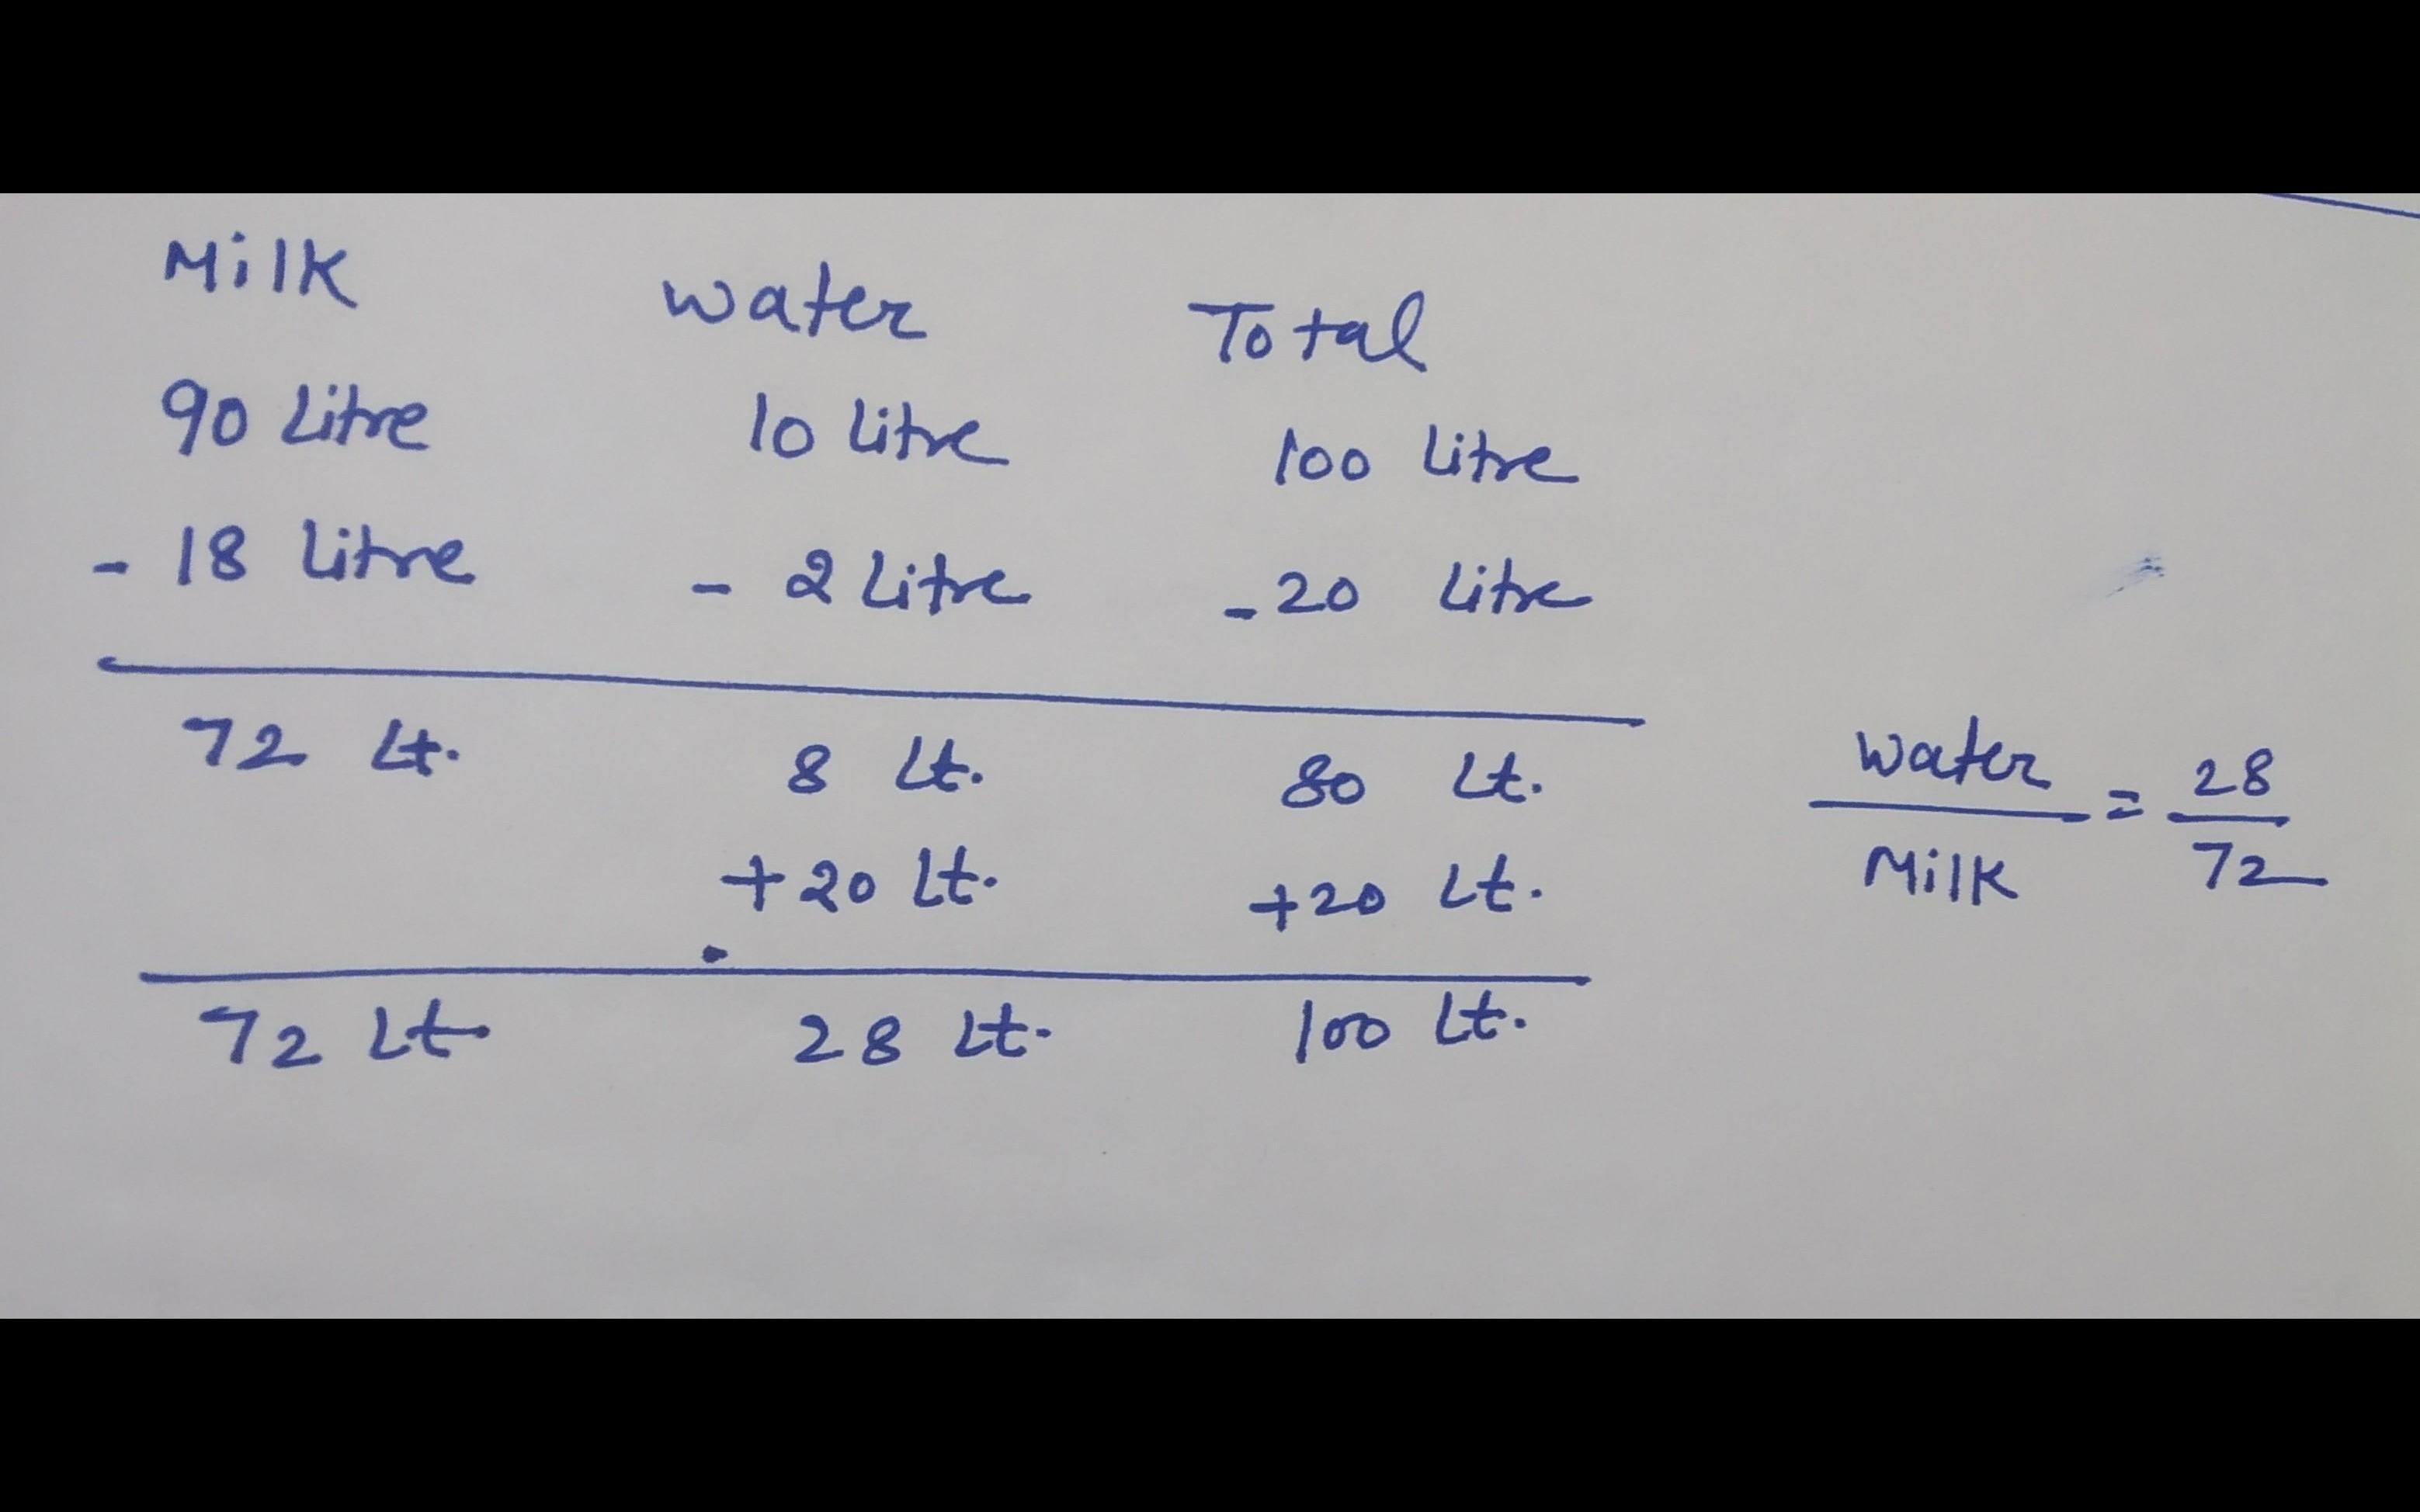 Milk water Total
90 Litre 10 litre 100 litre
- 18 litre - 2 Litre - 20 litre
72 Lt. 8 Lt. 80 Lt.
+ 20 Lt. + 20 Lt.
72 Lt. 28 Lt. 100 Lt.
water / Milk = 28 / 72